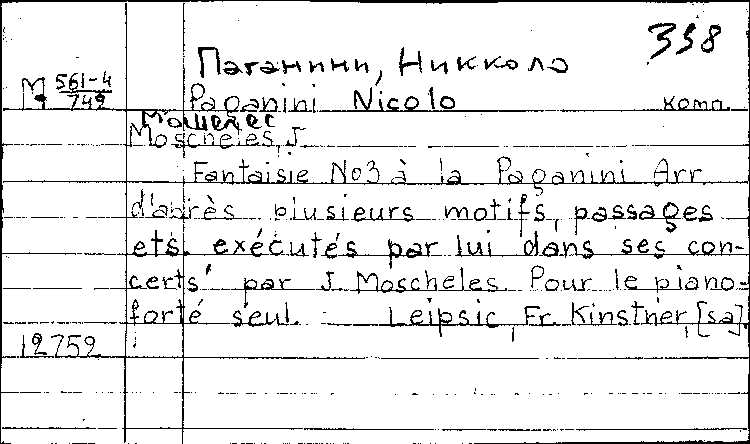 338
Паганини, Никколо
М 561-4/742
Paganini Nicolo комп.
Мошелес
Moscheles, J.
Fantaisie No3 à la Paganini Arr.
d'après plusieurs motifs, passages
ets. exécutés par lui dans ses con-
certs' par J. Moscheles. Pour le piano-
forté seul. Leipsic, Fr. Kinstner, [sa].
12752